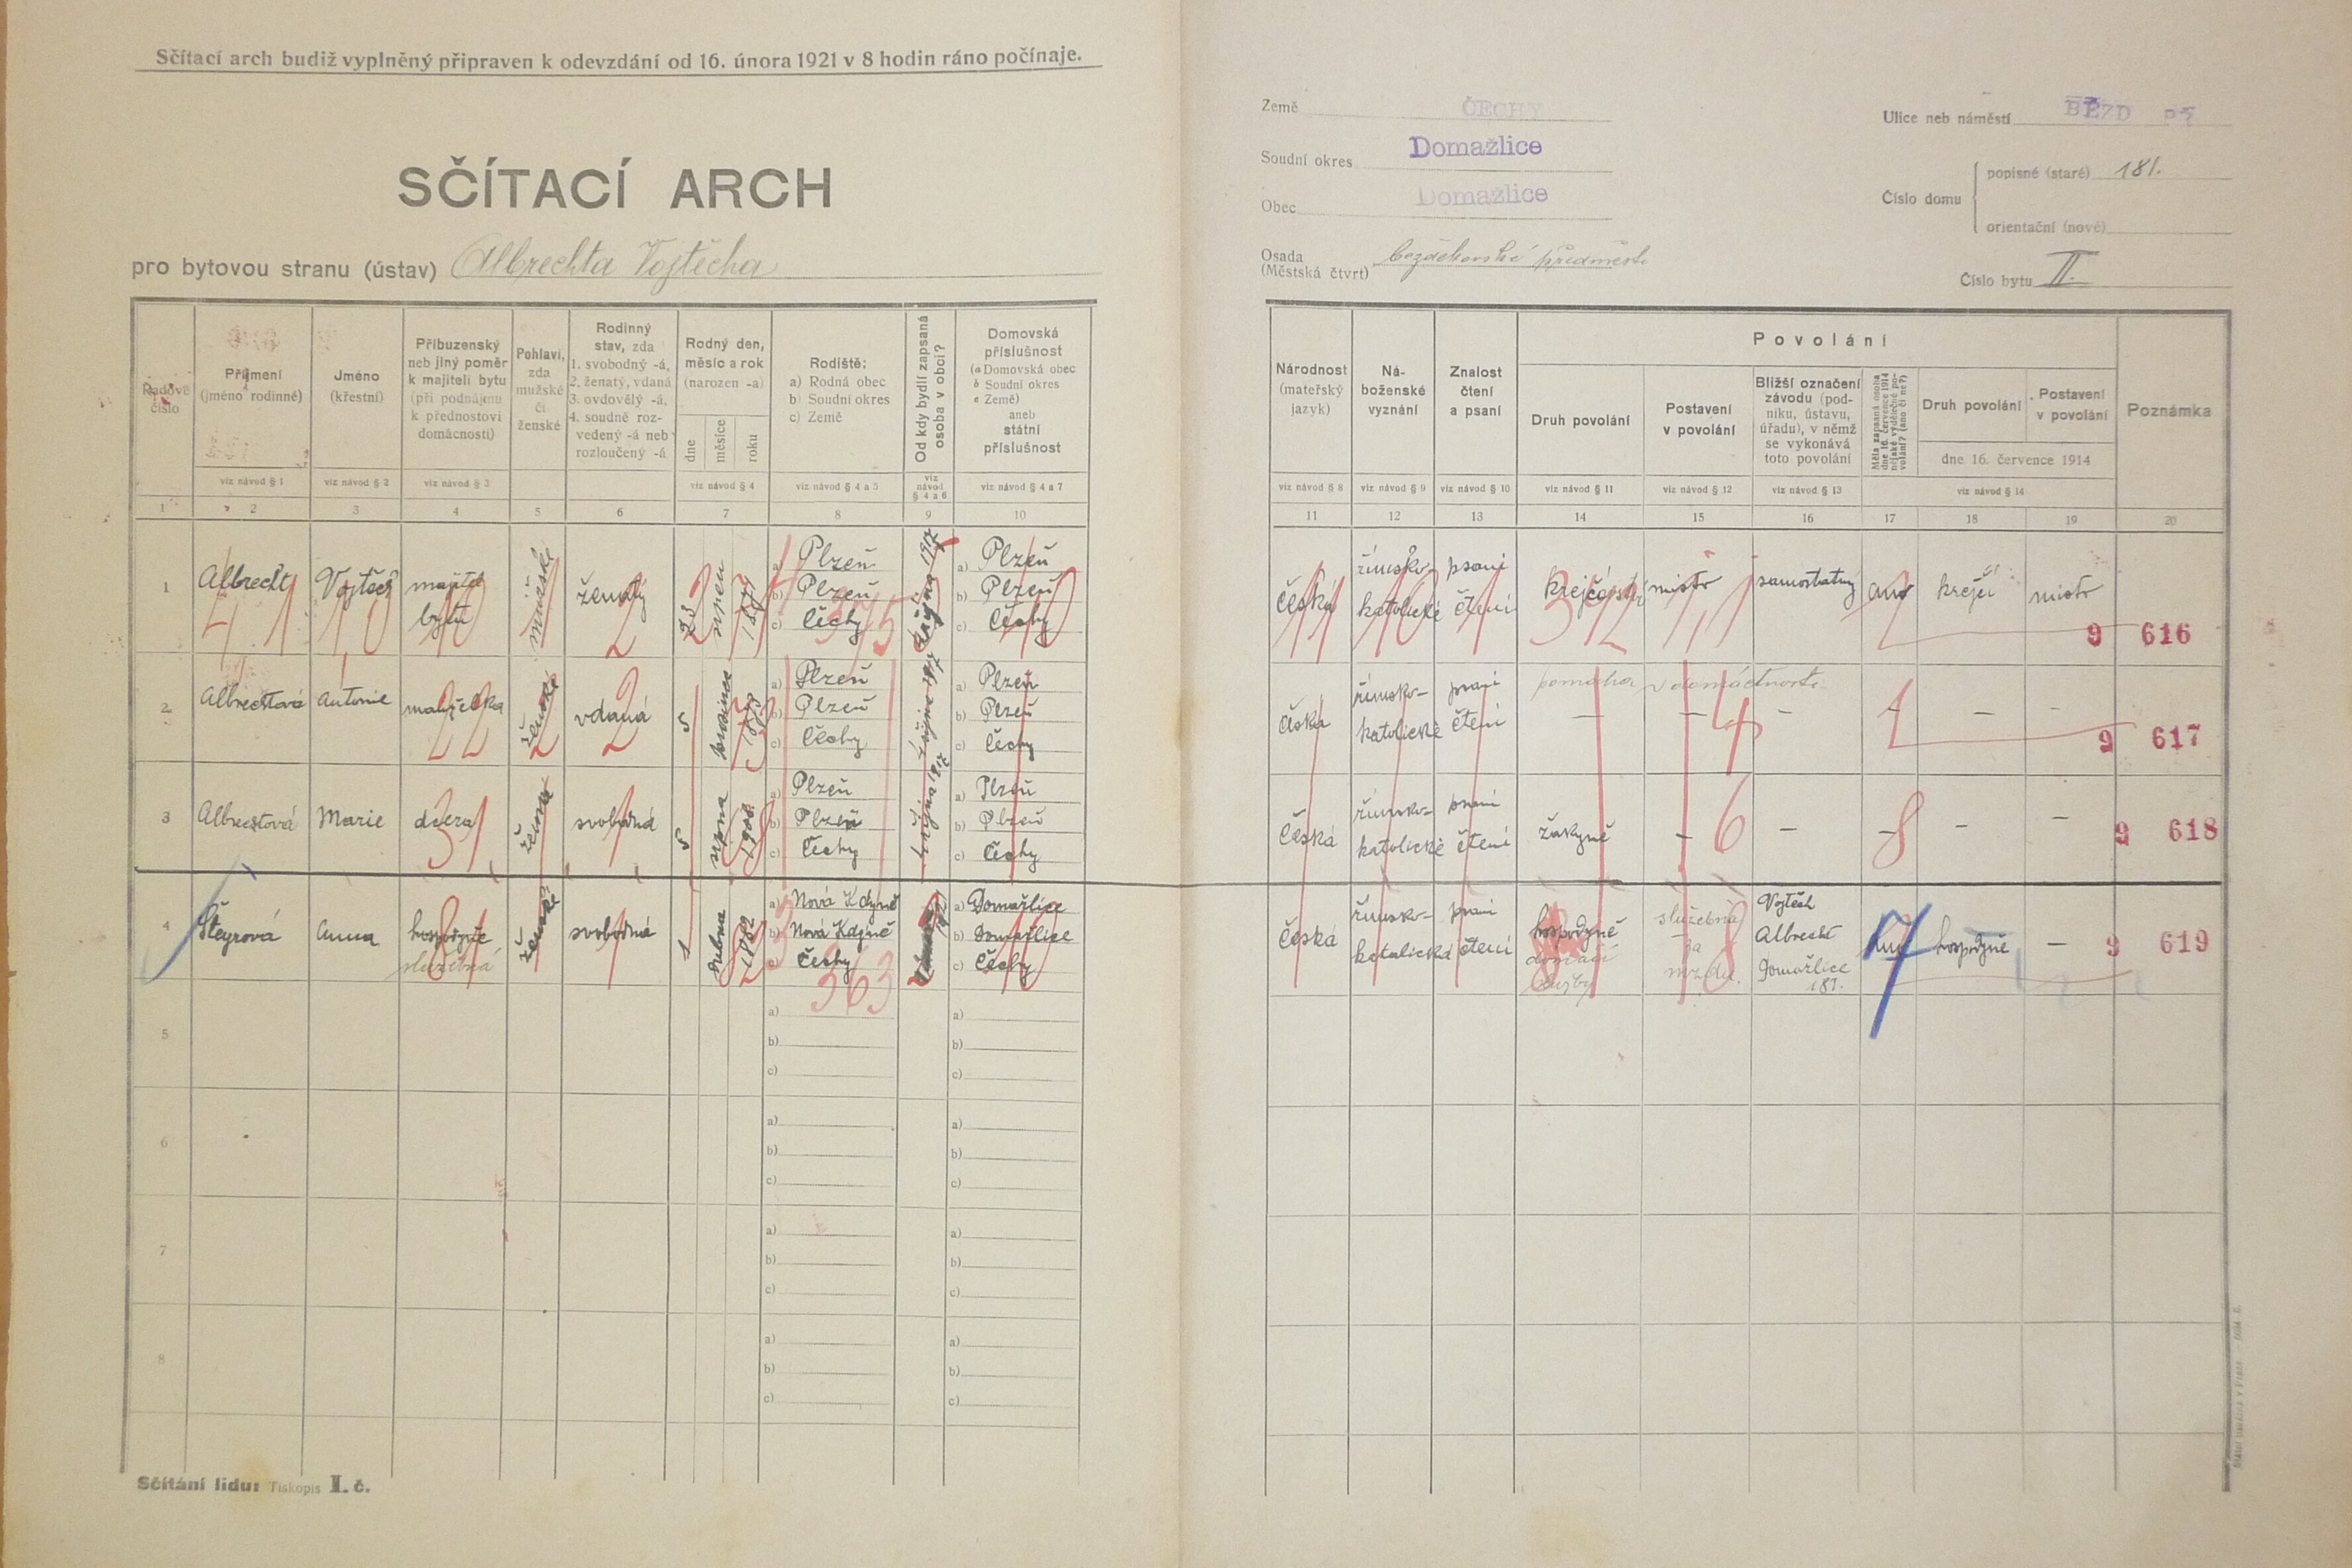 Sčítací arch budiž vyplněný připraven k odevzdání od 16. února 1921 v 8 hodin ráno počínaje.
SČÍTACÍ ARCH
pro bytovou stranu (ústav) Albrechta Vojtěcha
Země ČECHY
Soudní okres Domažlice
Obec Domažlice
Osada
(Městská čtvrt) bezděkovské předměstí
Ulice neb náměstí
Číslo domu
popisné (staré) 181.
orientační (nové)
Číslo bytu II.
Řadové číslo
Příjmení
(jméno rodinné)
Jméno
(křestní)
Příbuzenský
neb jiný poměr
k majiteli bytu
(při podnájmu
k přednostovi
domácnosti)
Pohlaví,
zda
mužské
či
ženské
Rodinný
stav, zda
1. svobodný -á,
2. ženatý, vdaná
3. ovdovělý -á,
4. soudně roz-
vedený -á neb
rozloučený -á
Rodný den,
měsíc a rok
(narozen -a)
dne
měsíce
roku
Rodiště:
a) Rodná obec
b) Soudní okres
c) Země
Od kdy bydlí zapsaná
osoba v obci?
Domovská
příslušnost
(a Domovská obec
b Soudní okres
c Země)
aneb
státní
příslušnost
viz návod § 1
viz návod § 2
viz návod § 3
viz návod § 4
viz návod § 4 a 5
viz návod § 4 a 6
viz návod § 4 a 7
1 2 3 4 5 6 7 8 9 10
Národnost
(mateřský
jazyk)
Ná-
boženské
vyznání
Znalost
čtení
a psaní
Povolání
Druh povolání
Postavení
v povolání
Bližší označení
závodu (pod-
niku, ústavu,
úřadu), v němž
se vykonává
toto povolání
Měla zapsaná osoba
dne 16. července 1914
nějaké výdělečné po-
volání? (ano či ne?)
Druh povolání
Postavení
v povolání
dne 16. července 1914
Poznámka
viz návod § 8
viz návod § 9
viz návod § 10
viz návod § 11
viz návod § 12
viz návod § 13
viz návod § 14
11 12 13 14 15 16 17 18 19 20
1 Albrecht Vojtěch majitel
bytu
mužské
ženatý
23 srpen
a) Plzeň
b) Plzeň
c) Čechy
375
a) Plzeň
b) Plzeň
c) Čechy
česká
římsko-
katolické
psaní
čtení
mistr samostatný ano krejčí mistr
9 616
2 Albrechtová Antonie manželka
ženské
vdaná
5 prosince
a) Plzeň
b) Plzeň
c) Čechy
a) Plzeň
b) Plzeň
c) Čechy
česká
římsko-
katolické
psaní
čtení
pomáhá v domácnosti
— — — — -
9 617
3 Albrechtová Marie dcera
ženské
svobodná
5
a) Plzeň
b) Plzeň
c) Čechy
a) Plzeň
b) Plzeň
c) Čechy
Česká
římsko-
katolické
psaní
čtení
žákyně — — — — —
9 618
4 Anna hospodyně
služebná
ženské
svobodná
1 dubna 1882
a) Nová Kdyně
b) Nová Kdyně
c) Čechy
363
a) Domažlice
b) Domažlice
c) Čechy
Česká
římsko-
katolická
psaní
čtení
hospodyně
domácí
služby
služebná
za
mzdu.
Vojtěch
Albrecht
Domažlice
181.
ano hospodyně —
9 619
5 a) a)
b) b)
c) c)
6 a) a)
b) b)
c) c)
7 a) a)
b) b)
c) c)
8 a) a)
b) b)
c) c)
Sčítání lidu: Tiskopis I. č.